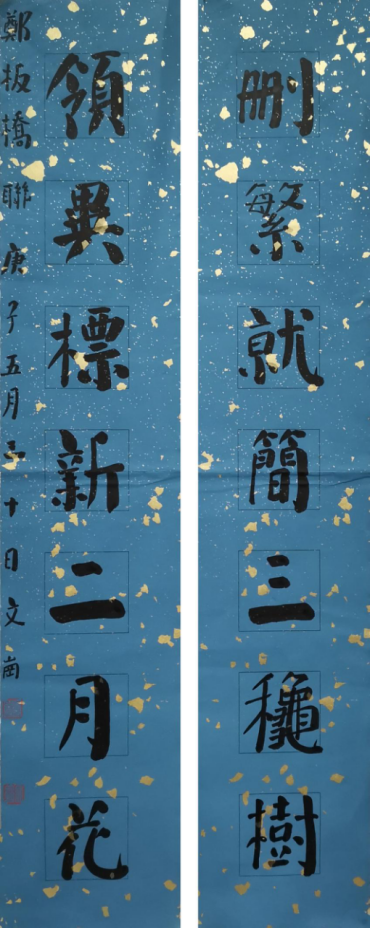 删繁就簡三穐樹
領異標新二月花
鄭板橋聯庚子五月三十日文崗